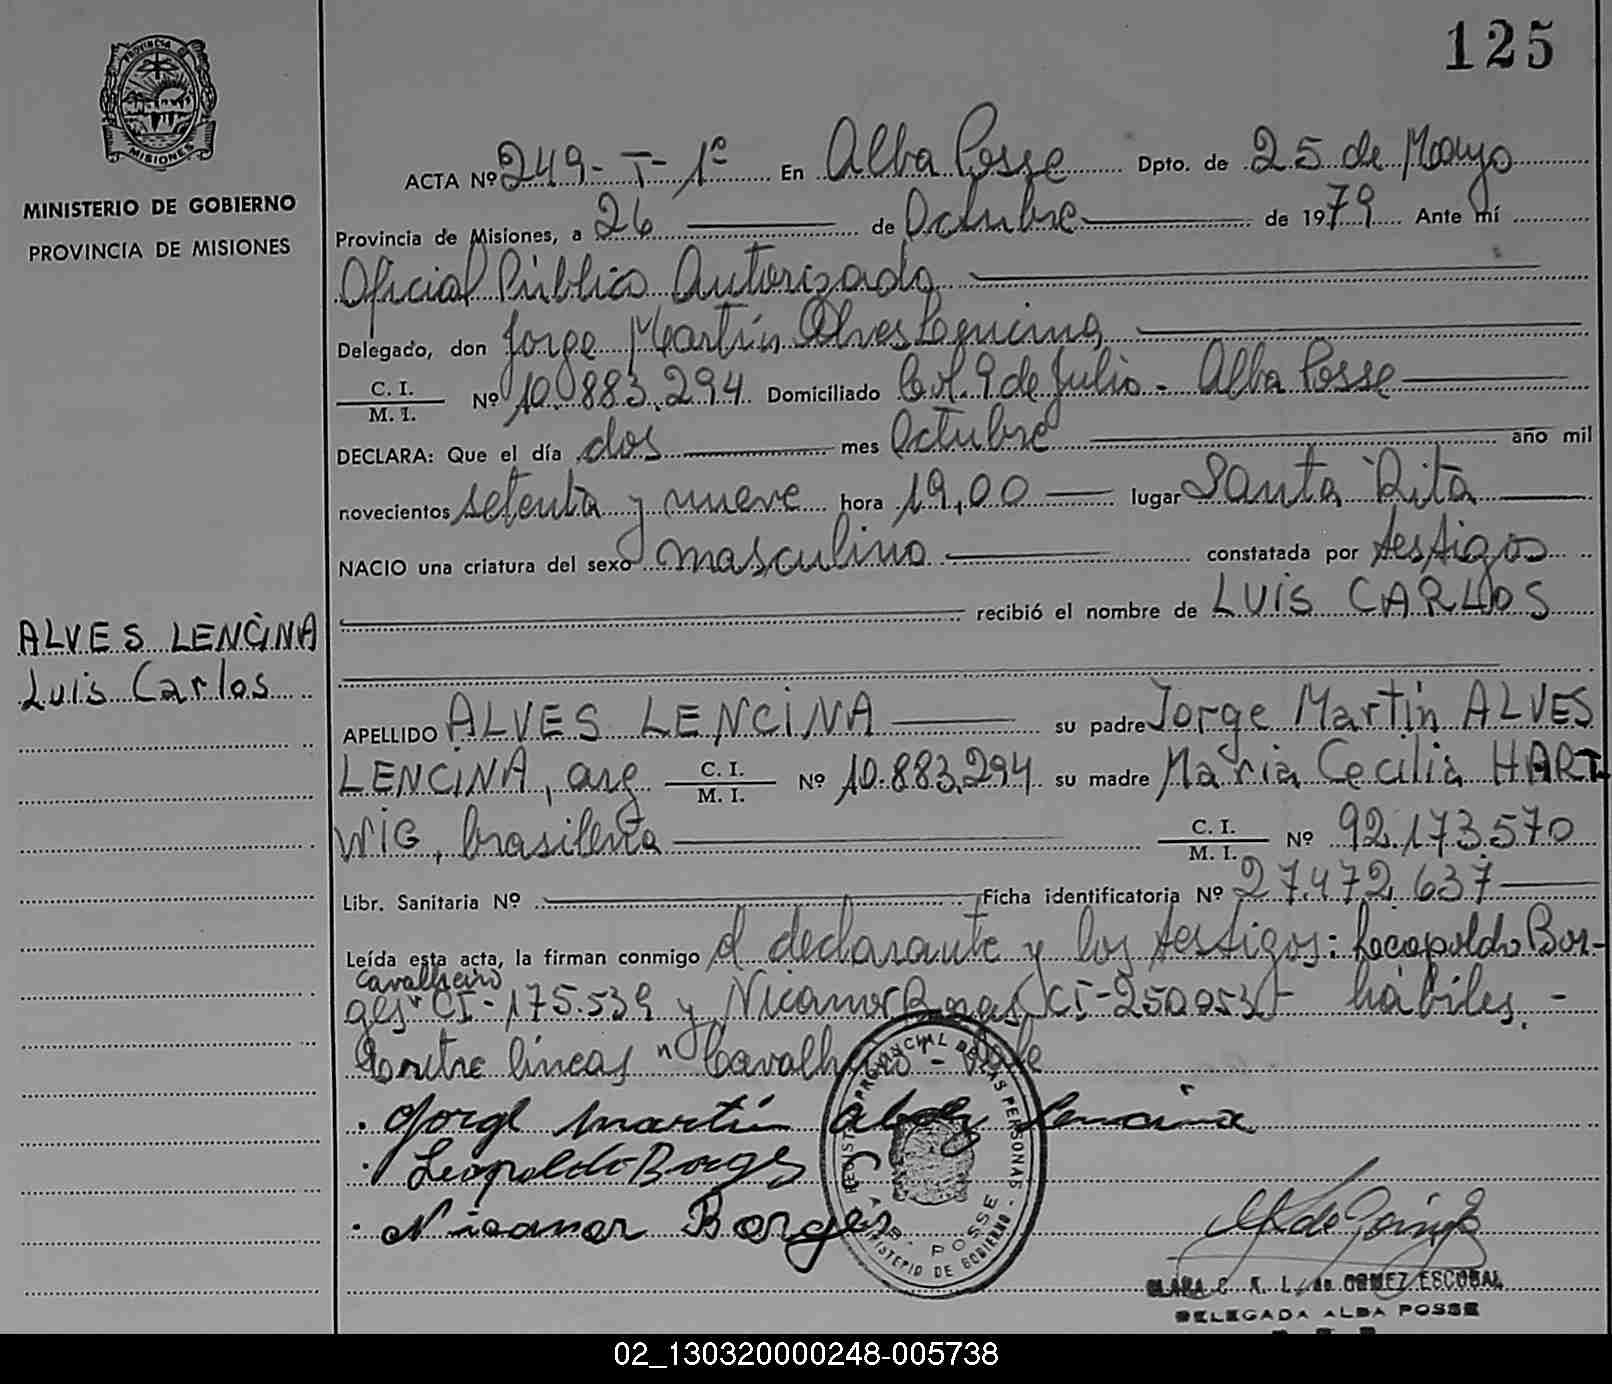 125
PROVINCIA DE
MISIONES
MINISTERIO DE GOBIERNO
PROVINCIA DE MISIONES
ALVES LENCINA
Luis Carlos
ACTA Nº 249-T-1º En Alba Posse Dpto. de 25 de Mayo
Provincia de Misiones, a 26 de Octubre de 1979 Ante mí
Oficial Público Autorizado
Delegado, don Jorge Martín Alves Lencina
C. I.
M. I. Nº 10.883.294 Domiciliado Col. 9 de Julio - Alba Posse
DECLARA: Que el día dos mes Octubre año mil
novecientos setenta y nueve hora 19,00 lugar Santa Rita
NACIO una criatura del sexo masculino constatada por testigos
recibió el nombre de LUIS CARLOS
APELLIDO ALVES LENCINA su padre Jorge Martín ALVES
LENCINA, arg C. I.
M. I. Nº 10.883.294 su madre María Cecilia HART
WIG, brasileña C. I.
M. I. Nº 92.173.570
Libr. Sanitaria Nº Ficha identificatoria Nº 27.472.637
Leída esta acta, la firman conmigo el declarante y los testigos: Leopoldo Bor-
Cavalheiro
ges CI-175.539 y Nicanor Borges CI- hábiles.-
Entre líneas "Cavalheiro - Vale
Jorge Martín Alves Lencina
Leopoldo Borges
Nicanor Borges
REGISTRO PROVINCIAL DE LAS PERSONAS
ALB. POSSE
MINISTERIO DE GOBIERNO
CLARA C. A. L. de GOMEZ ESCOBAL
DELEGADA ALBA POSSE
02_130320000248-005738